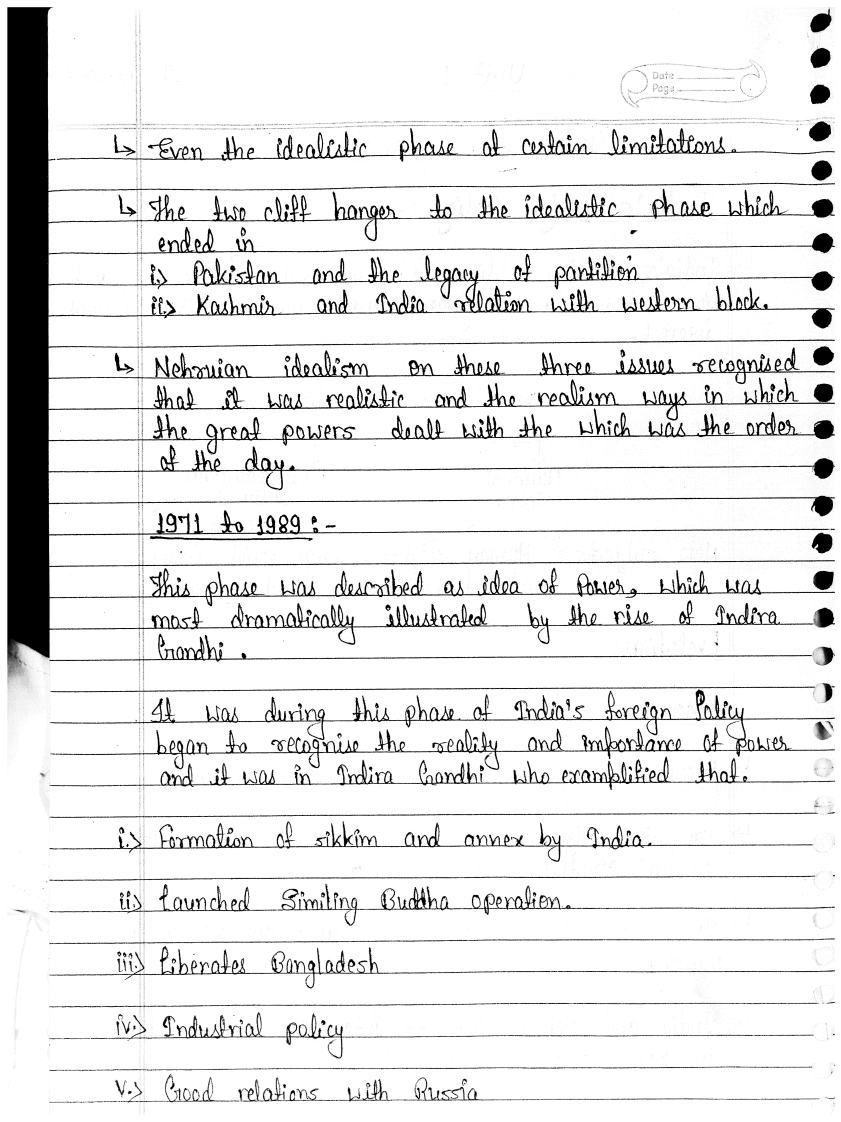 Date
Page
↳ Even the idealistic phase at certain limitations.
↳ The two cliff hanger to the idealistic phase which
ended in
i.> Pakistan and the legacy of partition
ii.> Kashmir and India relation with western block.
↳ Nehruian idealism on these three issues recognised
that it was realistic and the realism ways in which
the great powers dealt with the which was the order
of the day.
1971 to 1989 :-
This phase was described as idea of Power, which was
most dramatically illustrated by the rise of Indira
Gandhi .
It was during this phase of India's foreign Policy
began to recognise the reality and importance of power
and it was in Indira Gandhi who examplified that.
i.> Formation of sikkim and annex by India.
ii> Launched Simiting Buddha operation.
iii.> Liberates Bangladesh
iv.> Industrial policy
v.> Good relations with Russia